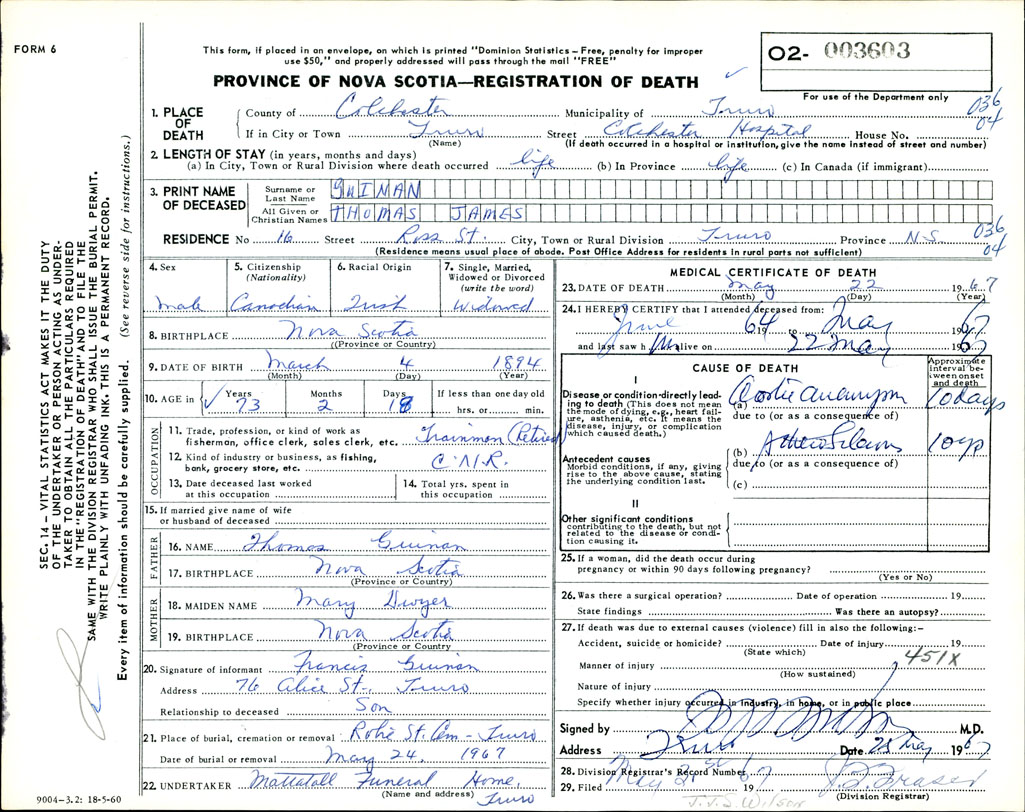 FORM 6
This form, if placed in an envelope, on which is printed "Dominion Statistics – Free, penalty for improper
use $50," and properly addressed will pass through the mail "FREE"
PROVINCE OF NOVA SCOTIA—REGISTRATION OF DEATH
02- 003603
For use of the Department only
036
04
1. PLACE OF DEATH
County of Colchester Municipality of Truro
If in City or Town Truro Street Colchester Hospital House No.
(Name) (If death occurred in a hospital or institution, give the name instead of street and number)
2. LENGTH OF STAY (in years, months and days)
(a) In City, Town or Rural Division where death occurred life (b) In Province life (c) In Canada (if immigrant)
3. PRINT NAME OF DECEASED
Surname or Last Name GUINAN
All Given or Christian Names THOMAS JAMES
RESIDENCE No 16 Street Ross St. City, Town or Rural Division Truro Province N.S.
036
04
(Residence means usual place of abode. Post Office Address for residents in rural parts not sufficient)
4. Sex
male
5. Citizenship
(Nationality)
Canadian
6. Racial Origin
Irish
7. Single, Married,
Widowed or Divorced
(write the word)
Widowed
8. BIRTHPLACE Nova Scotia
(Province or Country)
9. DATE OF BIRTH March 4 1894
(Month) (Day) (Year)
10. AGE in Years 73 Months 2 Days 18 If less than one day old
hrs. or min.
OCCUPATION
11. Trade, profession, or kind of work as
fisherman, office clerk, sales clerk, etc. Trainman (Retired)
12. Kind of industry or business, as fishing,
bank, grocery store, etc. C.N.R.
13. Date deceased last worked
at this occupation
14. Total yrs. spent in
this occupation
15. If married give name of wife
or husband of deceased
FATHER
16. NAME Thomas Guinan
17. BIRTHPLACE Nova Scotia
(Province or Country)
MOTHER
18. MAIDEN NAME Mary Dwyer
19. BIRTHPLACE Nova Scotia
(Province or Country)
20. Signature of informant Francis Guinan
Address 76 Alice St., Truro
Relationship to deceased Son
21. Place of burial, cremation or removal Robie St. Cem - Truro
Date of burial or removal May 24, 1967
22. UNDERTAKER Mattatall Funeral Home,
(Name and address) Truro
MEDICAL CERTIFICATE OF DEATH
23. DATE OF DEATH May 22 1967
(Month) (Day) (Year)
24. I HEREBY CERTIFY that I attended deceased from:
June 1964 to May 1967
and last saw him alive on 22 May 1967
CAUSE OF DEATH
Approximate
interval be-
tween onset
and death
I
Disease or condition directly lead-
ing to death (This does not mean
the mode of dying, e.g., heart fail-
ure, asthenia, etc. It means the
disease, injury, or complication
which caused death.)
(a) Aortic Aneurysm 10 days
due to (or as a consequence of)
Antecedent causes
Morbid conditions, if any, giving
rise to the above cause, stating
the underlying condition last.
(b) 10 yrs
due to (or as a consequence of)
(c)
II
Other significant conditions
contributing to the death, but not
related to the disease or condi-
tion causing it.
25. If a woman, did the death occur during
pregnancy or within 90 days following pregnancy?
(Yes or No)
26. Was there a surgical operation? Date of operation 19
State findings Was there an autopsy?
27. If death was due to external causes (violence) fill in also the following:–
Accident, suicide or homicide? Date of injury 19
(State which)
451X
Manner of injury
(How sustained)
Nature of injury
Specify whether injury occurred in industry, in home, or in public place
Signed by M.D.
Address Truro Date 23 May 1967
28. Division Registrar's Record Number
29. Filed May 1967
(Division Registrar)
J.J.S. Wilson
9004–3.2: 18-5-60
SEC. 14 – VITAL STATISTICS ACT MAKES IT THE DUTY
OF THE UNDERTAKER OR PERSON ACTING AS UNDER-
TAKER TO OBTAIN ALL THE PARTICULARS REQUIRED
IN THE "REGISTRATION OF DEATH" AND TO FILE THE
SAME WITH THE DIVISION REGISTRAR WHO SHALL ISSUE THE BURIAL PERMIT.
WRITE PLAINLY WITH UNFADING INK. THIS IS A PERMANENT RECORD.
Every item of information should be carefully supplied. (See reverse side for instructions.)